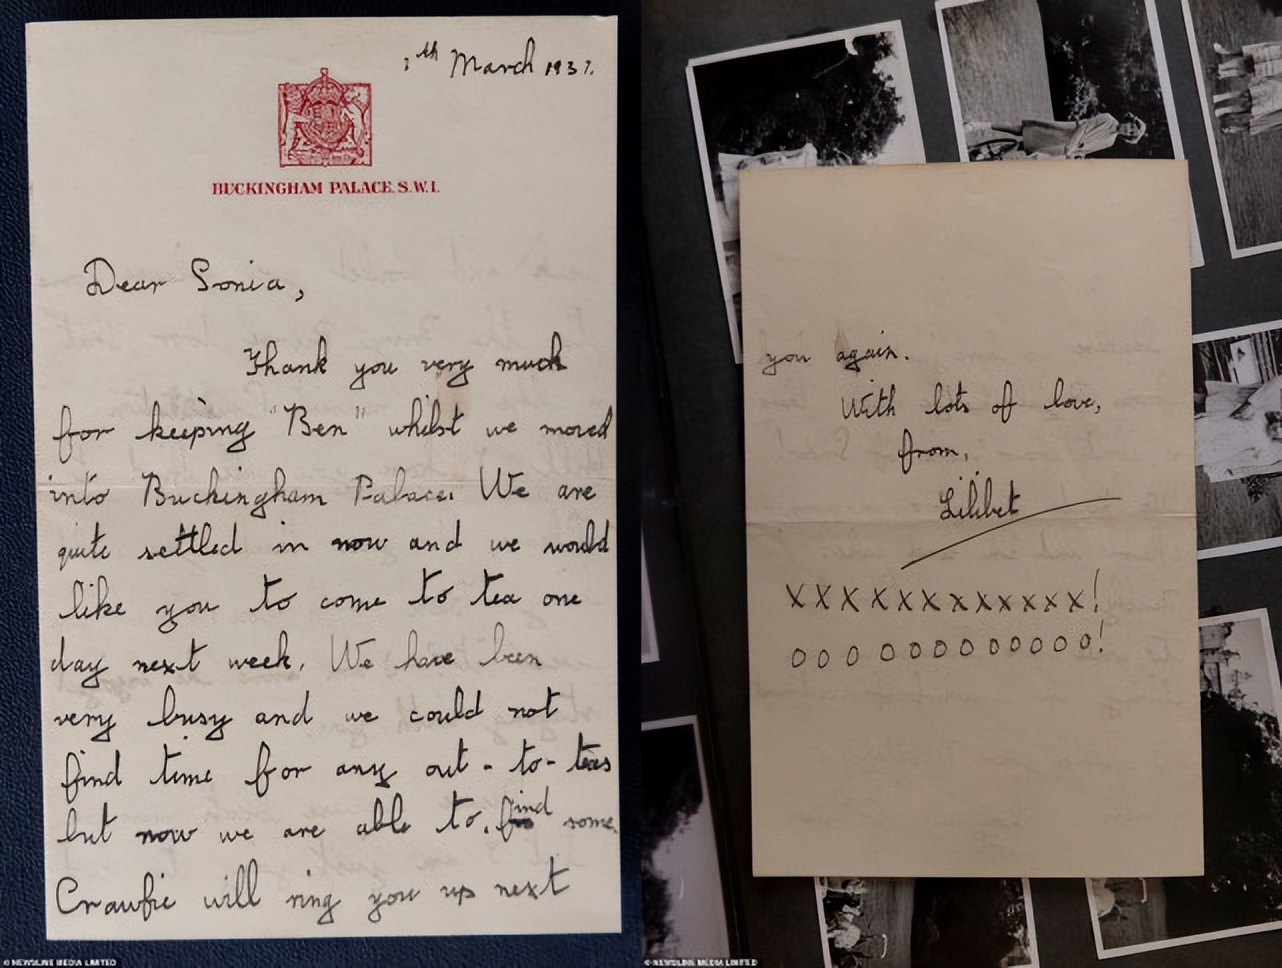 th March 1937.
BUCKINGHAM PALACE. S.W.1.
Dear Sonia,
Thank you very much
for keeping "Ben" whilst we moved
into Buckingham Palace. We are
quite settled in now and we would
like you to come to tea one
day next week. We have been
very busy and we could not
find time for any out-to-teas
but now we are able to find some.
Crawfie will ring you up next
© NEWSLINE MEDIA LIMITED
you again.
With lots of love,
from,
Lilibet
XXXXXXXXXXXX!
OOOOOOOOOOOO!
© NEWSLINE MEDIA LIMITED